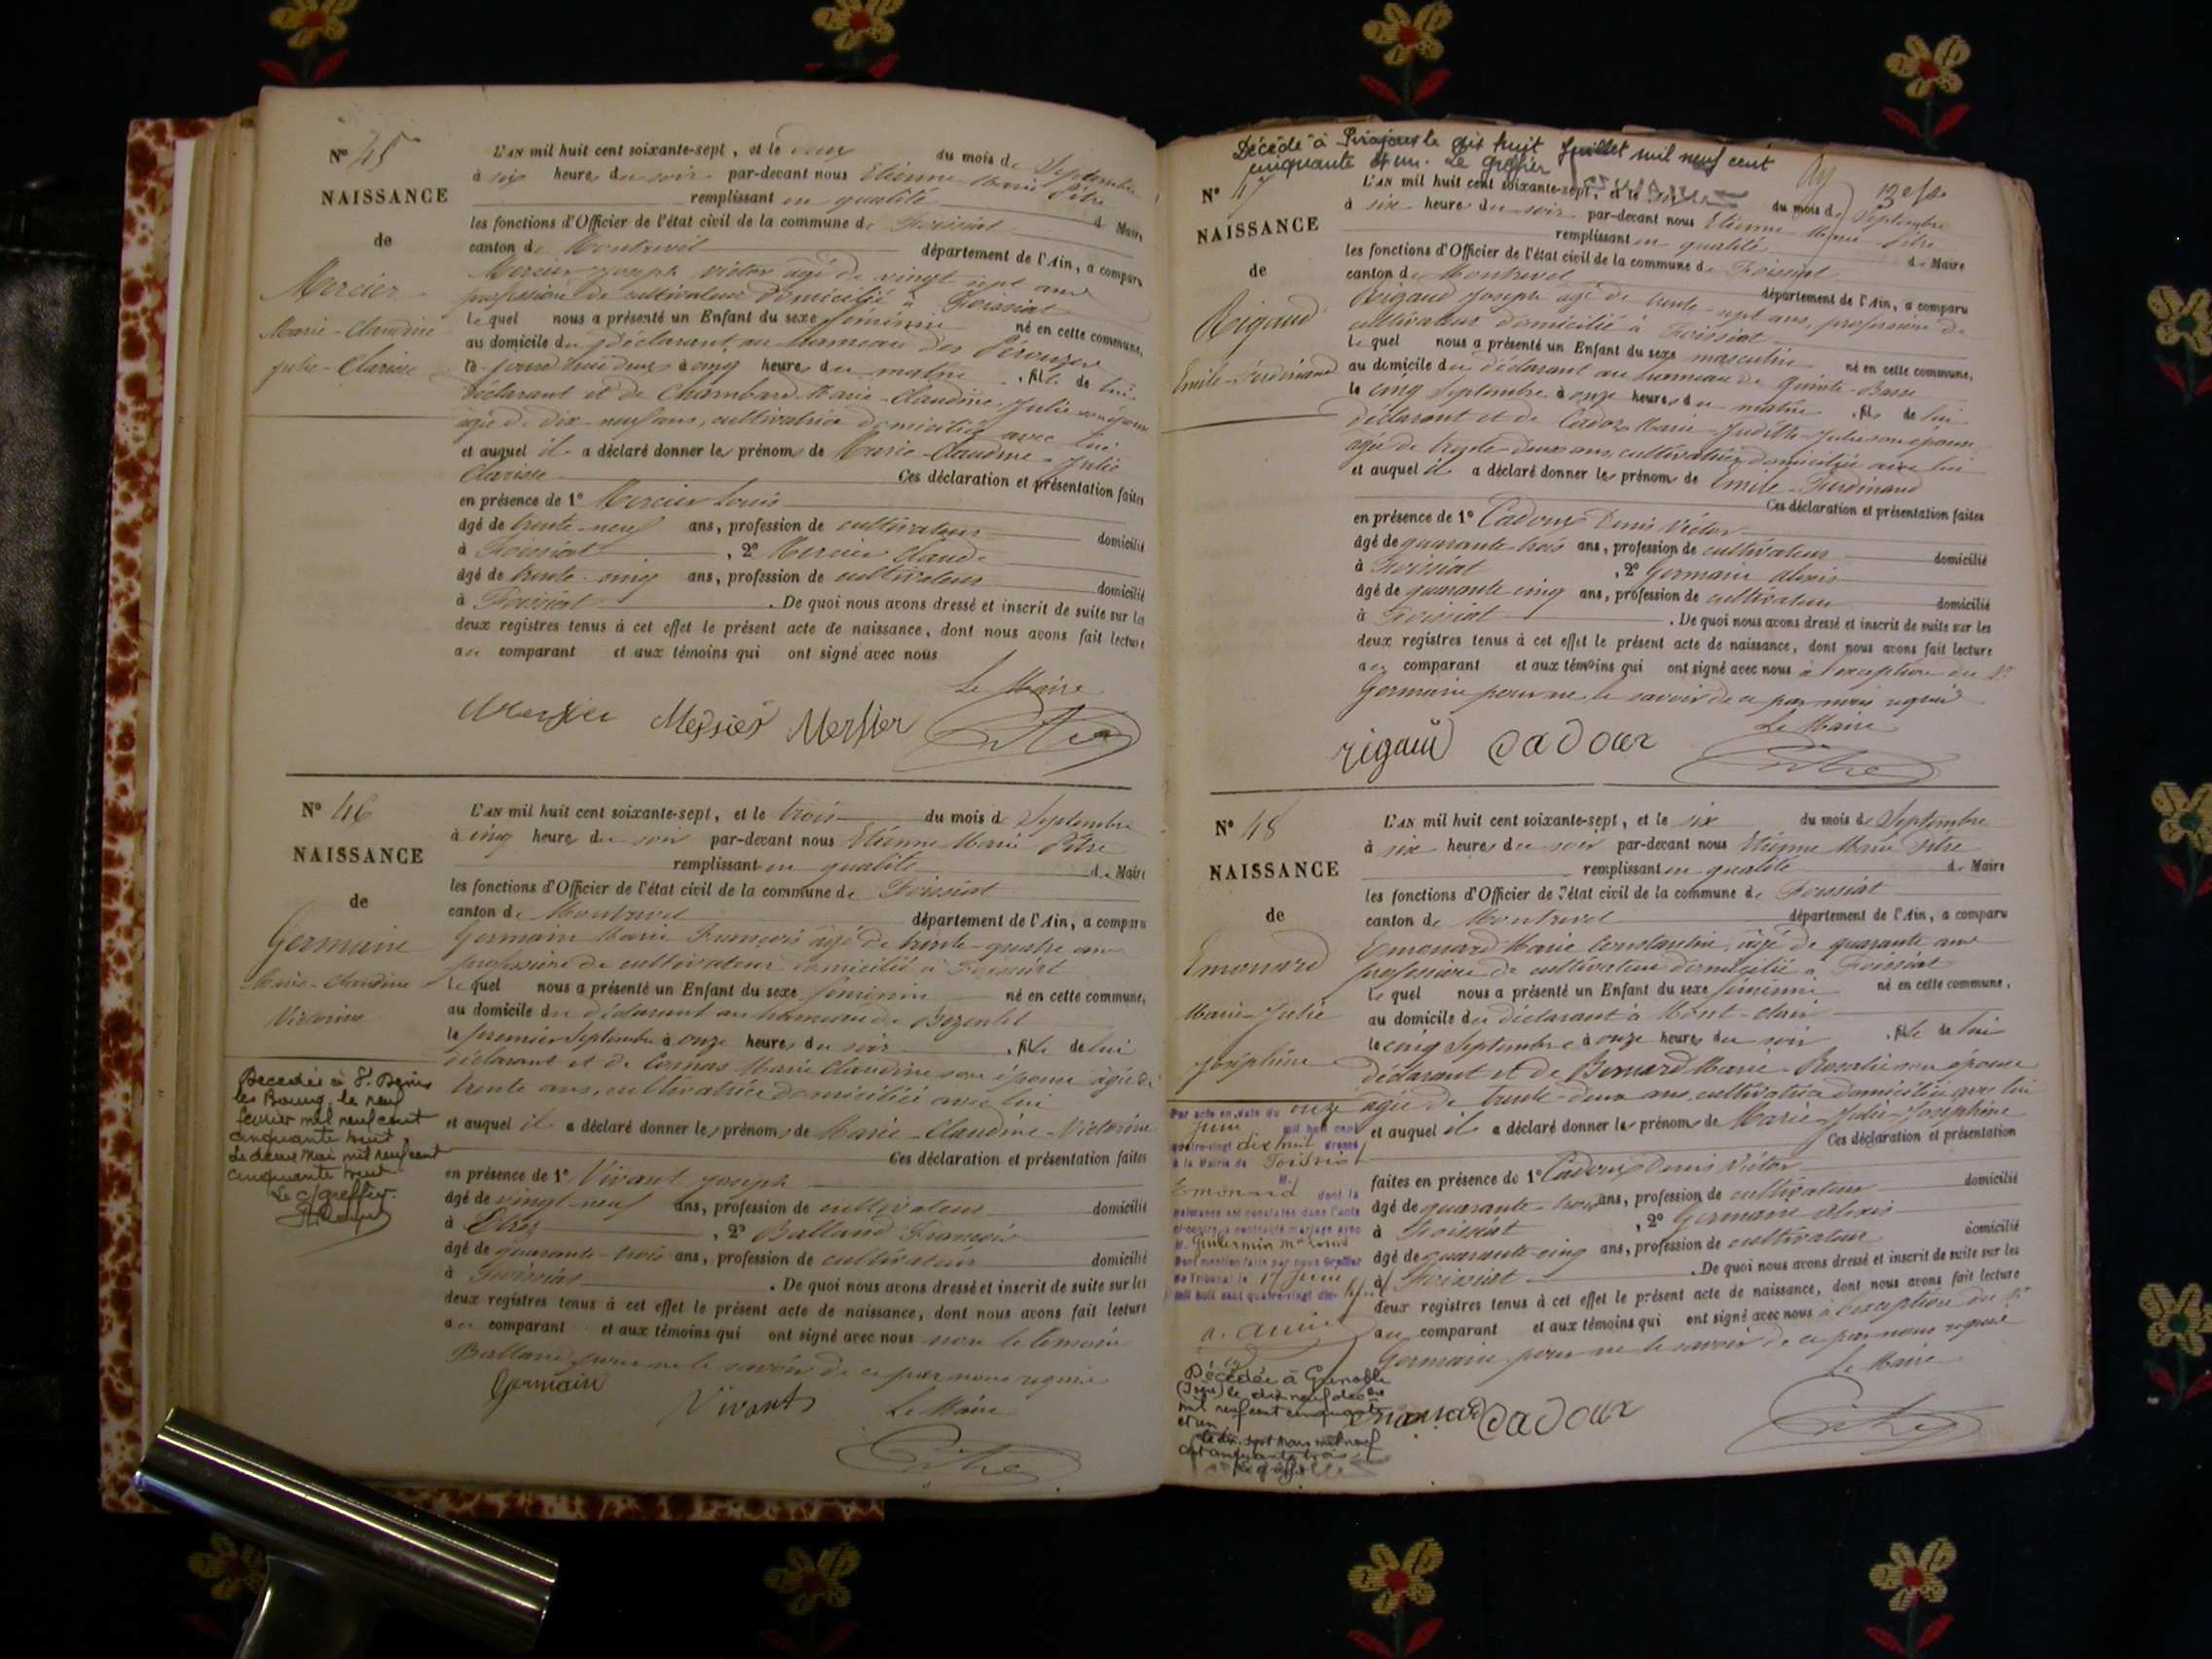 N° 45
NAISSANCE
de
Mercier
Marie-Claudine
Julie-Clarisse
L'AN mil huit cent soixante-sept, et le deux du mois de Septembre
à six heures du soir par-devant nous Etienne Marie Pitre
remplissant en qualité de Maire
les fonctions d'Officier de l'état civil de la commune de Foissiat
canton de Montrevel département de l'Ain, a comparu
Mercier Joseph Victor âgé de vingt sept ans
profession de cultivateur domicilié à Foissiat
lequel nous a présenté un Enfant du sexe féminin né en cette commune,
au domicile du déclarant au hameau des
le jourd'hui deux à cinq heures du matin, fille de lui
déclarant et de Chambard Marie-Claudine Julie son épouse
âgée de dix-neuf ans, cultivatrice domiciliée avec lui
et auquel il a déclaré donner les prénoms de Marie-Claudine-Julie
Clarisse Ces déclaration et présentation faites
en présence de 1° Mercier Louis
âgé de trente-neuf ans, profession de cultivateur domicilié
à Foissiat, 2° Mercier Claude
âgé de trente-cinq ans, profession de cultivateur domicilié
à Foissiat. De quoi nous avons dressé et inscrit de suite sur les
deux registres tenus à cet effet le présent acte de naissance, dont nous avons fait lecture
au comparant et aux témoins qui ont signé avec nous
Le Maire
Mercier Mercier Mercier Pitre
N° 46
NAISSANCE
de
Germain
Marie-Claudine
Victorine
L'AN mil huit cent soixante-sept, et le trois du mois de Septembre
à cinq heures du soir par-devant nous Etienne Marie Pitre
remplissant en qualité de Maire
les fonctions d'Officier de l'état civil de la commune de Foissiat
canton de Montrevel département de l'Ain, a comparu
Germain Marie François âgé de trente-quatre ans
profession de cultivateur domicilié à Foissiat
lequel nous a présenté un Enfant du sexe féminin né en cette commune,
au domicile du déclarant au hameau de
le premier Septembre à onze heures du soir, fille de lui
déclarant et de Cornas Marie Claudine son épouse âgée de
trente ans, cultivatrice domiciliée avec lui
et auquel il a déclaré donner les prénoms de Marie-Claudine-Victorine
Ces déclaration et présentation faites
en présence de 1° Vivant Joseph
âgé de vingt-neuf ans, profession de cultivateur domicilié
à Etrez, 2° Balland François
âgé de quarante-trois ans, profession de cultivateur domicilié
à Foissiat. De quoi nous avons dressé et inscrit de suite sur les
deux registres tenus à cet effet le présent acte de naissance, dont nous avons fait lecture
au comparant et aux témoins qui ont signé avec nous non le témoin
Balland pour ne le savoir de ce par nous requis
Germain Vivant Le Maire
Pitre
Décédée à St. Denis
les Bourg, le neuf
février mil neuf cent
cinquante huit
Le douze Mai mil neuf cent
cinquante huit
Le c/greffier.
Décédé à le dix huit Juillet mil neuf cent
cinquante et un. Le greffier
N° 47
NAISSANCE
de
Rigaud
Emile-Ferdinand
L'AN mil huit cent soixante-sept, et le six du mois de Septembre
à six heures du soir par-devant nous Etienne Marie Pitre
remplissant en qualité de Maire
les fonctions d'Officier de l'état civil de la commune de Foissiat
canton de Montrevel département de l'Ain, a comparu
Rigaud Joseph âgé de trente-sept ans, profession de
cultivateur domicilié à Foissiat
lequel nous a présenté un Enfant du sexe masculin né en cette commune,
au domicile du déclarant au hameau de
le cinq Septembre à onze heures du matin, fils de lui
déclarant et de Marie-Judith-Julie son épouse
âgée de trente deux ans cultivatrice domiciliée avec lui
et auquel il a déclaré donner les prénoms de Emile-Ferdinand
Ces déclaration et présentation faites
en présence de 1° Cadoux Denis Victor
âgé de quarante trois ans, profession de cultivateur domicilié
à Foissiat, 2° Germain Alexis
âgé de quarante cinq ans, profession de cultivateur domicilié
à Foissiat. De quoi nous avons dressé et inscrit de suite sur les
deux registres tenus à cet effet le présent acte de naissance, dont nous avons fait lecture
au comparant et aux témoins qui ont signé avec nous à l'exception du Sr
Germain pour ne le savoir de ce par nous requis
Le Maire
rigaud Cadoux Pitre
N° 48
NAISSANCE
de
Emonard
Marie-Julie
Joséphine
L'AN mil huit cent soixante-sept, et le six du mois de Septembre
à six heures du soir par-devant nous Etienne Marie Pitre
remplissant en qualité de Maire
les fonctions d'Officier de l'état civil de la commune de Foissiat
canton de Montrevel département de l'Ain, a comparu
Emonard Marie Constantin, âgé de quarante ans
profession de cultivateur domicilié à Foissiat
lequel nous a présenté un Enfant du sexe féminin né en cette commune,
au domicile du déclarant à Mont-clair
le cinq Septembre à onze heures du soir, fille de lui
déclarant et de Bernard Marie-Rosalie son épouse
âgée de trente-deux ans cultivatrice domiciliée avec lui
et auquel il a déclaré donner les prénoms de Marie-Julie-Joséphine
Ces déclaration et présentation
faites en présence de 1° Cadoux Denis Victor domicilié
âgé de quarante trois ans, profession de cultivateur
à Foissiat, 2° Germain Alexis domicilié
âgé de quarante-cinq ans, profession de cultivateur
à Foissiat. De quoi nous avons dressé et inscrit de suite sur les
deux registres tenus à cet effet le présent acte de naissance, dont nous avons fait lecture
au comparant et aux témoins qui ont signé avec nous à l'exception du Sr
Germain pour ne le savoir de ce par nous requis
Le Maire
Emonard Cadoux Pitre
Par acte en date du onze
Juin mil huit cent
quatre-vingt dix huit dressé
à la Mairie de Foissiat
M.
Emonard dont la
naissance est constatée dans l'acte
ci-contre a contracté mariage avec
M. Guillermin
Dont mention faite par nous Greffier
du Tribunal le 17 Juin
mil huit cent quatre-vingt dix-huit
Décédée à Grenoble
(Isère) le dix neuf
mil neuf cent cinquante
et un
le dix sept mars mil neuf
cent cinquante trois
Le greffier